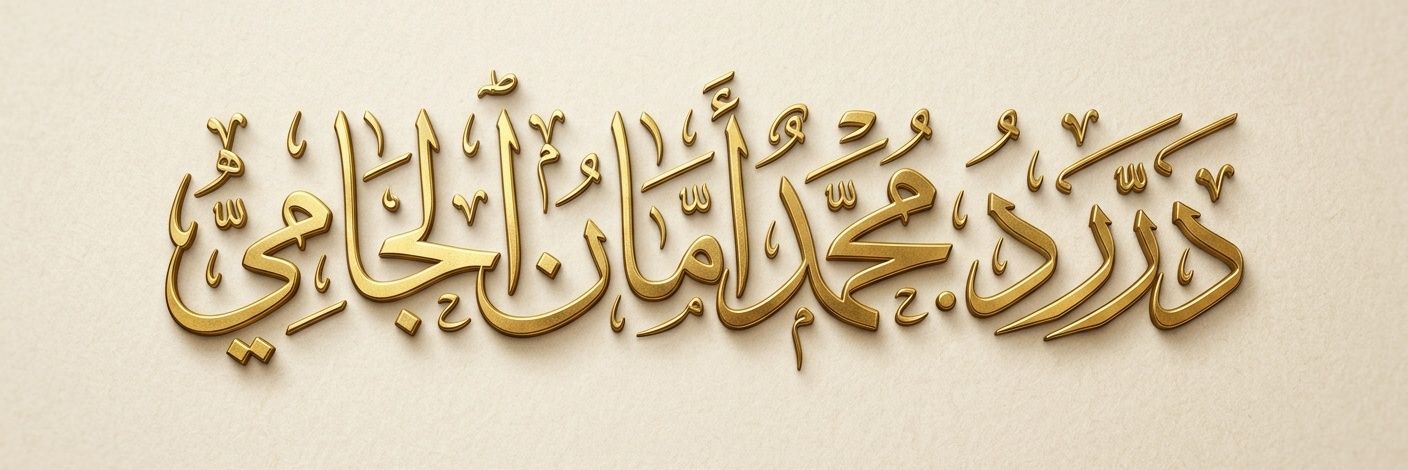 دَرَّردُ. مُحَمَّدُ أَمَّانُ الجَامِيُّ